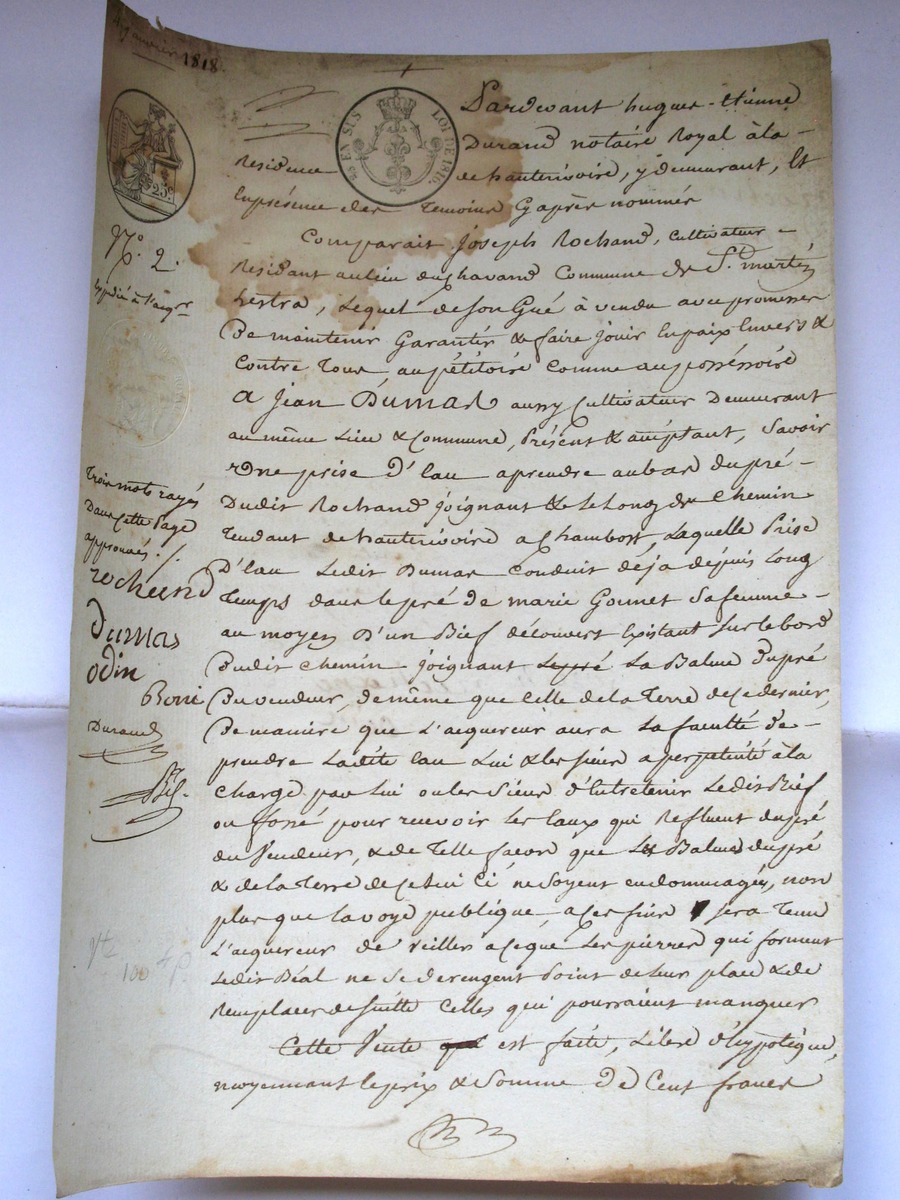 4 Janvier 1818.
25c.
85 EN SUS LOI DE 1816.
Pardevant hugues-Etienne
Durand notaire Royal à la
Residence de hauterivoire, y demeurant, Et
En présence des Temoins Cy après nommés
Comparait Joseph Rochand, Cultivateur
Residant au lieu du Chavand Commune de St. Martin
Lestra, Lequel de son Gré à vendu avec promesse
De maintenir Garantir & faire jouir En paix Envers &
Contre Tous au pétitoire comme au posséssoire
A Jean Dumas aussy Cultivateur Demeurant
au même Lieu & Commune, Présent & acceptant, Savoir
Une prise D'Eau a prendre au bas du pré
Dudit Rochand joignant & le Long du Chemin
Tendant de hauterivoire a Chambost, Laquelle Prise
D'Eau Ledit Dumas Conduit déja dépuis Long
Temps dans le pré de marie Gonnet Sa femme
au moyen D'un Bief découvert Existant sur le bord
Dudit Chemin joignant Le pré La Balme du pré
Du vendeur, de même que Celle de la Terre de Ce dernier,
De manière que L'acquereur aura La faculté de
prendre Ladite Eau Lui & Les siens a perpétuité à la
Charge par Lui ou les Siens d'Entretenir Ledit Bief
ou fossé pour recevoir Les Eaux qui Refluent du pré
du Vendeur, & de Telle facon que Les Balmes du pré
& de la Terre de Celui Ci ne Soyent endommagés, non
plus que la voye publique, a Ces fins sera Tenu
L'acquereur de veiller a Ce que Les pierres qui forment
Ledit Béal ne Se dérengent Point de Leur place & de
Remplacer de suitte Celles qui pourraient manquer
Cette Vente est faite, Libre d'hypotèque,
moyennant le prix & Somme de Cent francs
No. 2.
Expédié à l'acqr
Trois mots rayés
Dans Cette Page
approuvés ./.
rochand
Dumas
odin
Boni
Durand
100